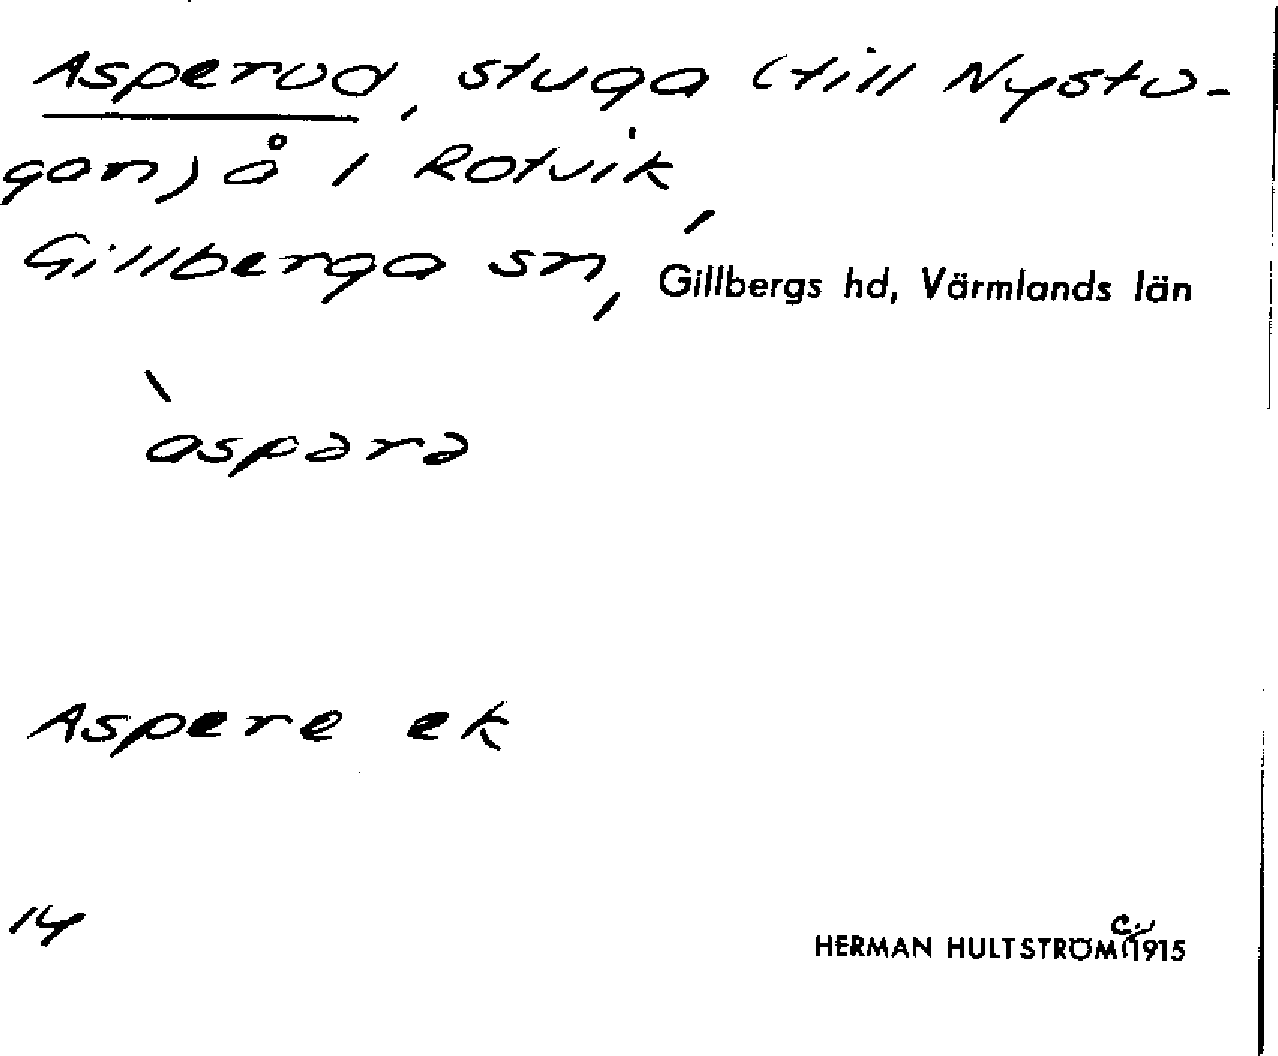 Asperud, stuga (till Nystu-
gan) å 1 Rotvik,
Gillberga sn, Gillbergs hd, Värmlands län
`aspərə
Aspere ek
14
HERMAN HULTSTRÖM c. 1915